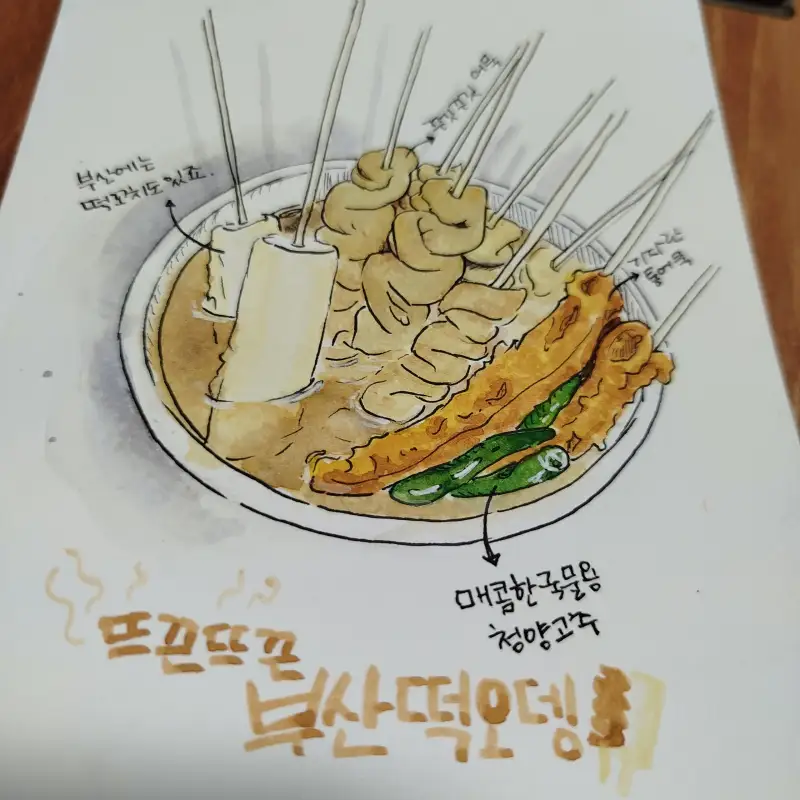 부산에는
떡꼬치도 있죠.
꼬불꼬불 어묵
기다란
통어묵
매콤한 국물용
청양고추
뜨끈뜨끈
부산떡오뎅